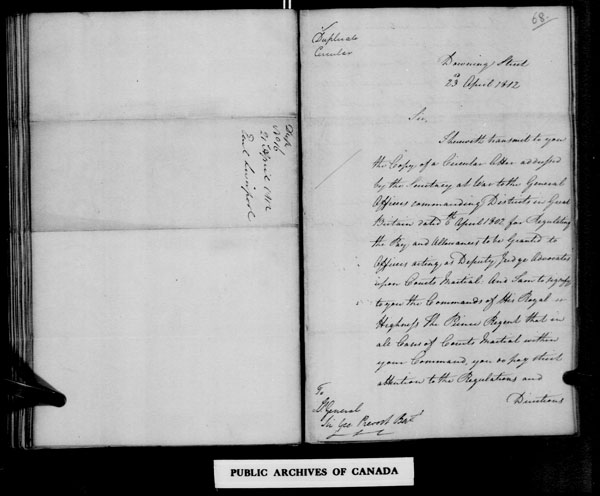 Dup.
No 16
21 April 1812
Earl Liverpool
68.
Duplicate
Circular
Downing Street
23d April 1812
Sir,
I herewith transmit to you
the Copy of a Circular letter addressed
by the Secretary at War to the General
Officers commanding Districts in Great
Britain dated 6th April 1802 for Regulating
the Pay and Allowances to be Granted to
Officers acting as Deputy Judge Advocates
upon Courts Martial. And I am to signify
to you the Commands of His Royal
Highness The Prince Regent that in
all Cases of Courts Martial within
your Command, you do pay strict
attention to the Regulations and
Directions
To
Lt General
Sir Geo Prevost Bart
PUBLIC ARCHIVES OF CANADA